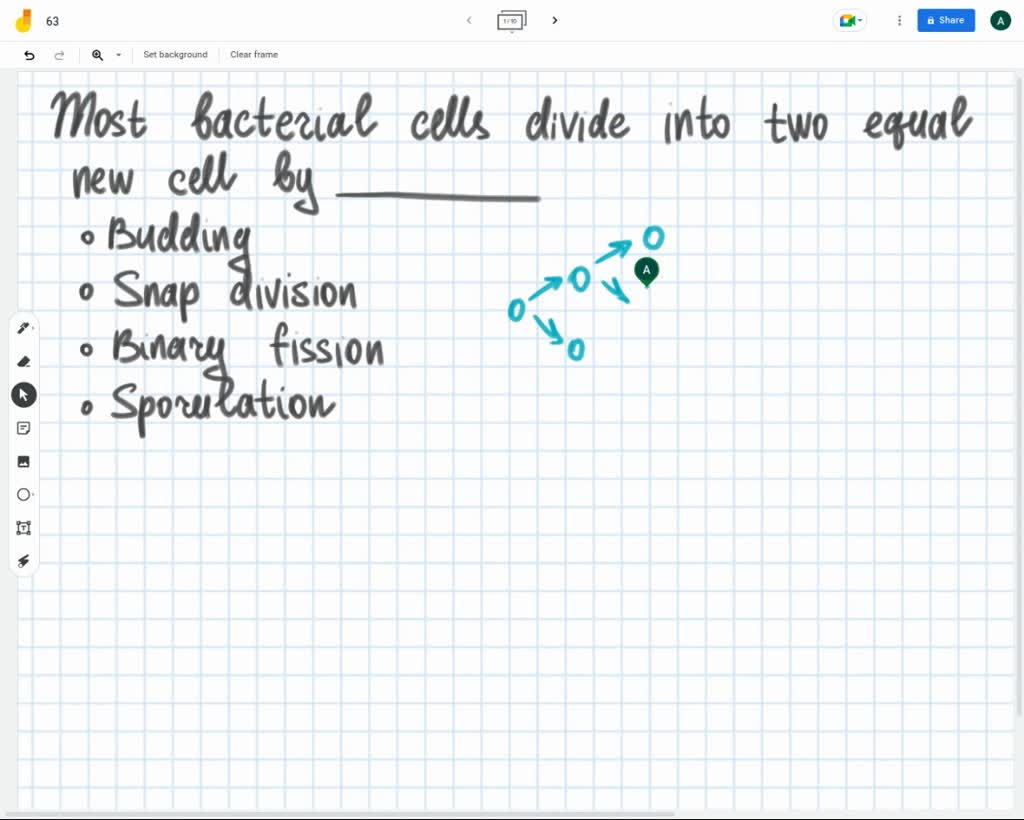 63
1 / 10
Share
A
Set background
Clear frame
Most bacterial cells divide into two equal
new cell by
• Budding
• Snap division
• Binary fission
• Sporulation
A